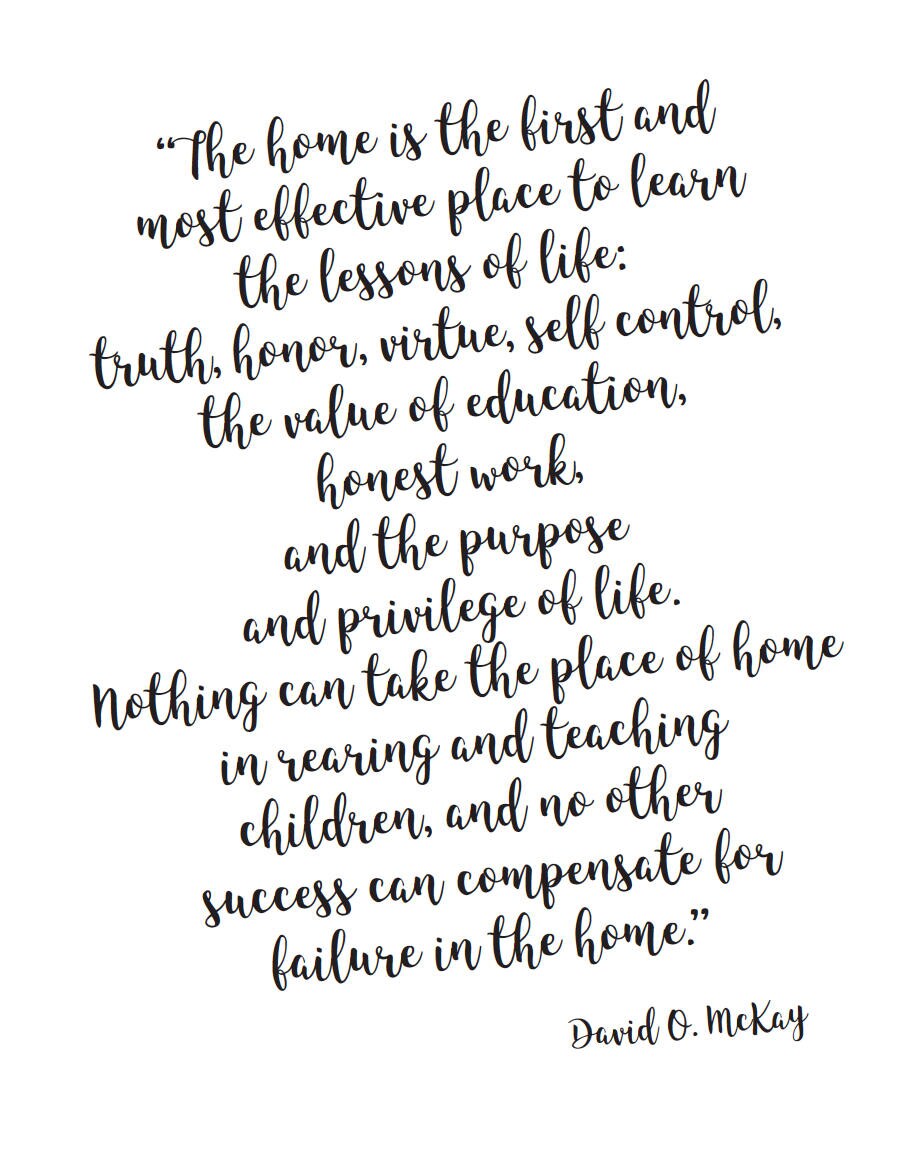 “The home is the first and
most effective place to learn
the lessons of life:
truth, honor, virtue, self control,
the value of education,
honest work,
and the purpose
and privilege of life.
Nothing can take the place of home
in rearing and teaching
children, and no other
success can compensate for
failure in the home.”
David O. McKay